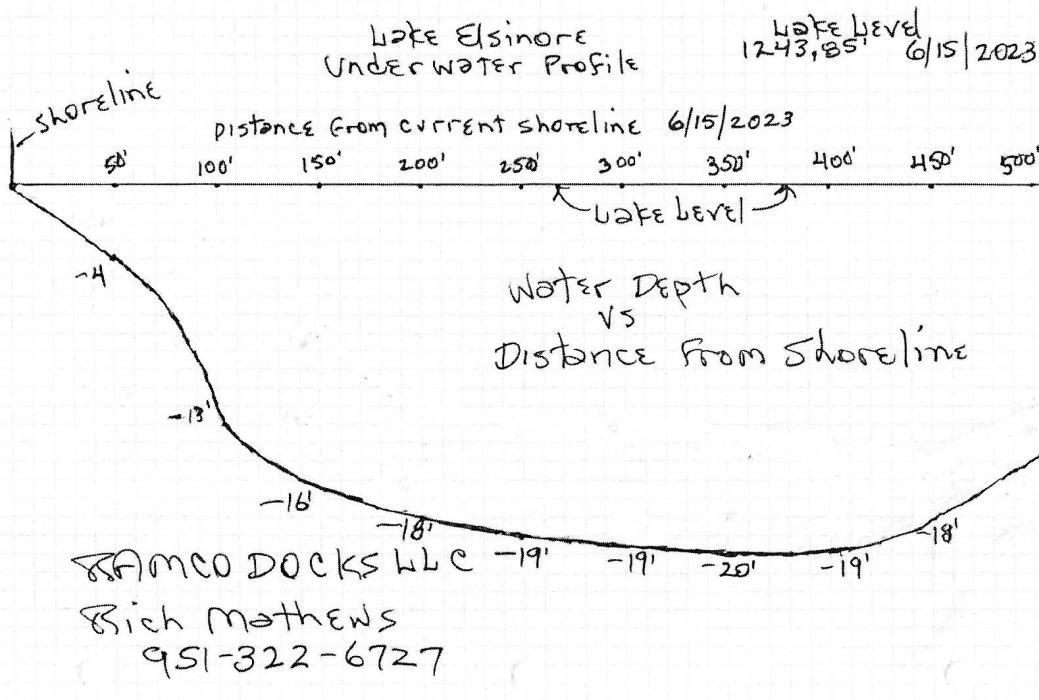 Lake Elsinore
Underwater Profile
Lake Level
1243,85' 6/15/2023
shoreline
Distance from current shoreline 6/15/2023
50' 100' 150' 200' 250' 300' 350' 400' 450' 500'
Lake Level
-4
Water Depth
VS
Distance From Shoreline
-13'
-16'
-18'
-19'
-19'
-20'
-19'
-18'
RAMCO DOCKS LLC
Rich Mathews
951-322-6727